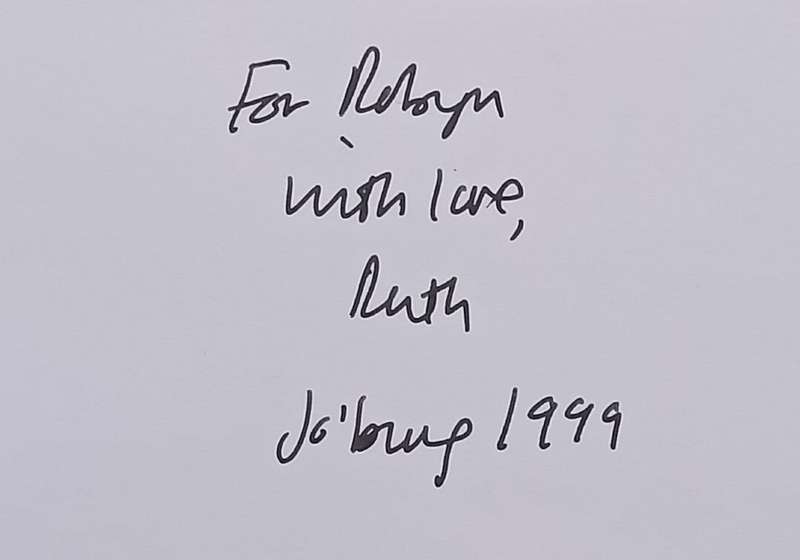 For Robyn
with love,
Ruth
Jo'burg 1999